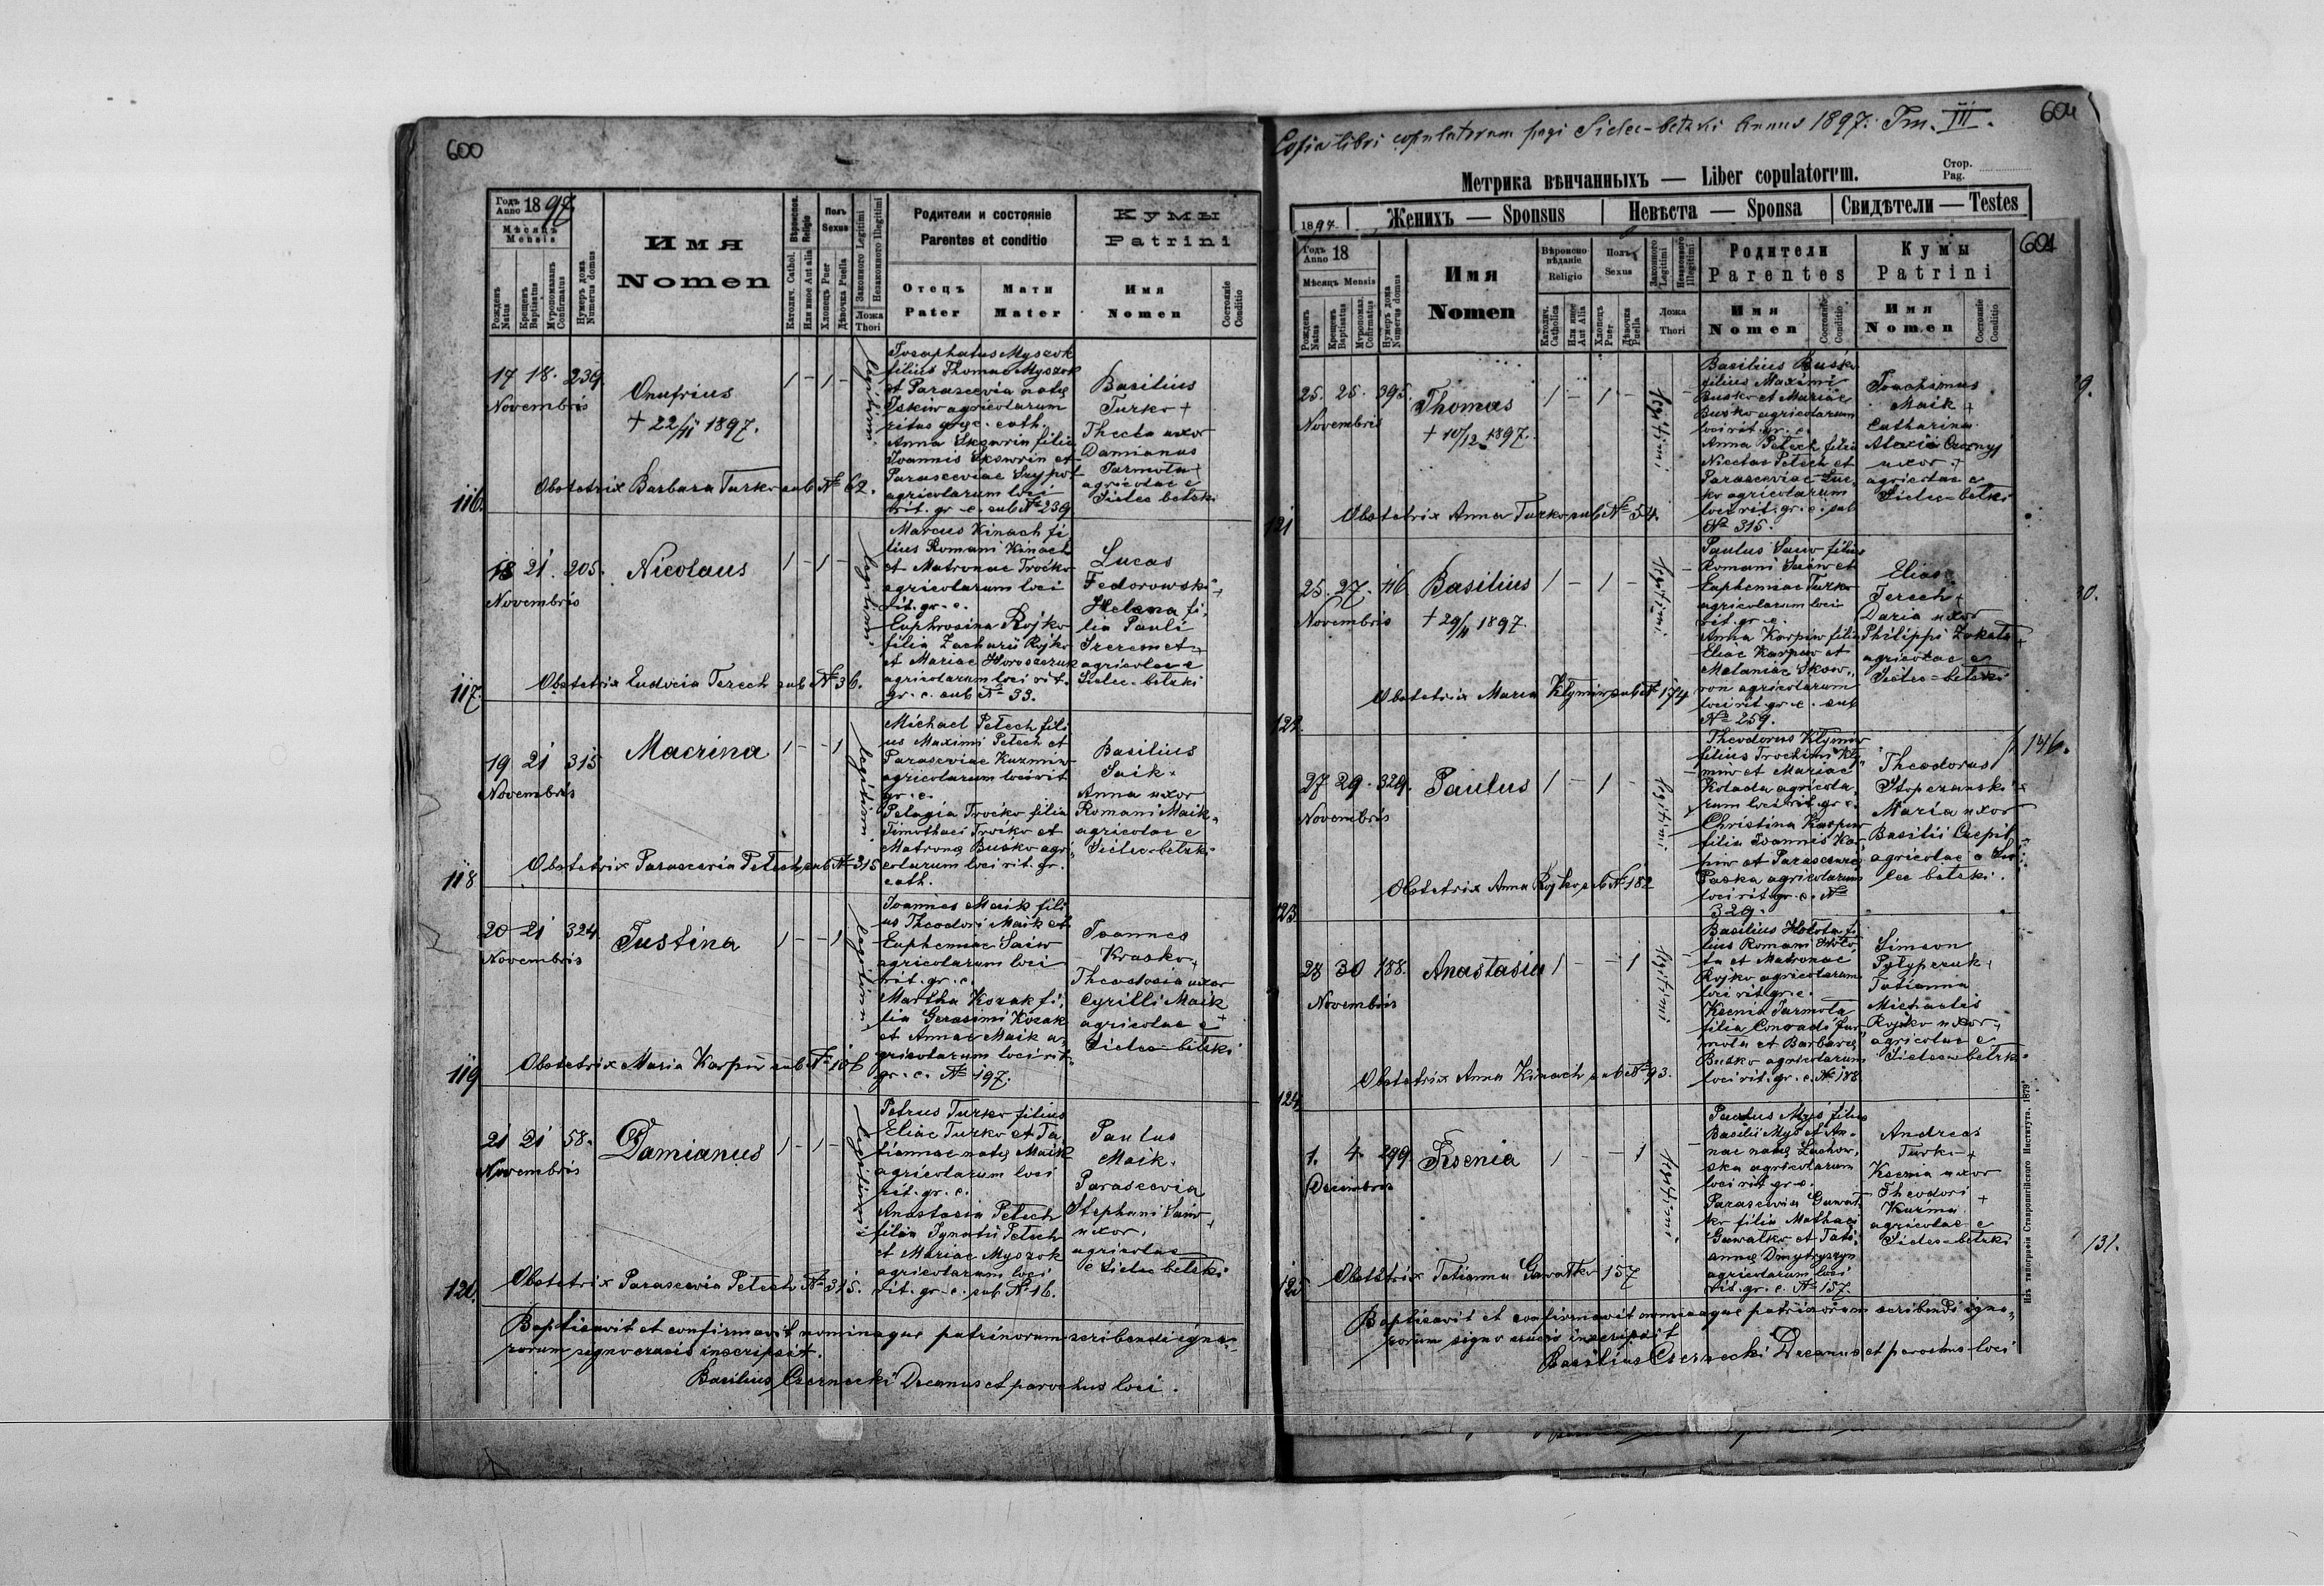 600
Годъ Anno 1897
Мѣсяцъ Mensis
Рожденъ Natus
Крещенъ Baptisatus
Мѵропоманъ Confirmatus
Нумеръ дома Numerus domus
Имя
Nomen
Вѣроиспов. Religio
Католич. Cathol.
Или иное Aut alia
Полъ Sexus
Хлопець Puer
Дѣвочка Puella
Законного Legitimi
Незаконного Illegitimi
Ложа Thori
Родители и состояніе
Parentes et conditio
Отецъ
Pater
Мати
Mater
Кумы
Patrini
Имя
Nomen
Состояніе Conditio
116.
17 18. 239
Novembris
Onufrius
+ 22/11 1897.
1 - 1 -
legitimi
Josaphatus Myszok
filius Thomae Myszok
et Parascevia natę
Iskiw agricolarum
ritus gręc. cath.
Anna Skowrin filia
Joannis Skowrin et
Parasceviae
agricolarum loci
rit. gr. c. sub № 239
Basilius
Turko +
Thecla uxor
Damianus
Jarmola +
agricolae e
Sielec betski
Obstetrix Barbara Turko sub № 62.
117.
18 21. 205.
Novembris
Nicolaus
1 - 1 -
legitimi
Marcus Kinach fi
lius Romani Kinach
et Matronae Troćko
agricolarum loci
rit. gr. c.
Euphrosina Rojko
filia Zacharii Rojko
et Mariae Horoszczuk
agricolarum loci rit.
gr. c. sub № 33.
Lucas
Fedorowski +
Helena fi
lia Pauli
Szeremet +
agricolae e
Sielec-betski
Obstetrix Eudocia Terech sub № 36.
118
19 21 315
Novembris
Macrina
1 - - 1
legitimi
Michael Petech fili
us Maximi Petech et
Parasceviae Kuzmiw
agricolarum loci rit
gr. c.
Pelagia Troćko filia
Timothaei Troćko et
Matronę Busko agri
colarum loci rit. gr.
cath.
Basilius
Saik +
Anna uxor
Romani Maik +
agricolae e
Sielec-betski
Obstetrix Parascevia Petech sub № 315
119
20 21 324
Novembris
Justina
1 - - 1
legitimi
Joannes Maik fili
us Theodori Maik et
Euphemiae Saiw
agricolarum loci
rit. gr. c.
Martha Kozak fi
lia Gerasimi Kozak
et Annae Maik a
gricolarum loci rit
gr. c. № 197.
Joannes
Krasko +
Theodosia uxor
Cyrilli Maik +
agricolae e
Sielec-betski
Obstetrix Maria Karpiw sub №
120.
21 21 58.
Novembris
Damianus
1 - 1 -
legitimi
Petrus Turko filius
Eliae Turko et Ta
tiannae natę Maik
agricolarum loci
rit. gr. c.
Anastasia Petech
filia Ignatii Petech
et Mariae Myszok
agricolarum loci
rit. gr. c. sub № 16.
Paulus
Maik.
Parascevia
Stephani Saiw +
uxor.
agricolae
e Sielec betski
Obstetrix Parascevia Petech № 315.
Baptisavit et confirmavit nominaque patrinorum scribendi igna-
rorum signo crucis inscripsit.
Basilius Czernecki Decanus et parochus loci.
Copia libri copulatorum pagi Sielec-betski Annus 1897. Tm. III.
601
Метрика вѣнчанныхъ — Liber copulatorum.
Стор. Pag.
1897. Женихъ — Sponsus
Невѣста — Sponsa
Свидѣтели — Testes
601
Годъ Anno 18
Мѣсяцъ Mensis
Рожденъ Natus
Крещенъ Baptisatus
Мѵропомаз. Confirmatus
Нумеръ дома Numerus domus
Имя
Nomen
Вѣроисповѣданіе
Religio
Католич. Catholica
Или иное Aut Alia
Полъ
Sexus
Хлопець Puer
Дѣвочка Puella
Законного Legitimi
Незаконного Illegitimi
Ложа
Thori
Родители
Parentes
Имя
Nomen
Состояніе Conditio
Кумы
Patrini
Имя
Nomen
Состояніе Conditio
121
25. 25. 395.
Novembris
Thomas
+ 10/12 1897.
1 - 1 -
legitimi
Basilius Busko
filius Maximi
Busko et Mariae
Busko agricolarum
loci rit. gr. c.
Anna Petech filia
Nicetae Petech et
Parasceviae
agricolarum
loci rit. gr. c. sub
№ 315.
Joachimus
Maik +
Catharina
Alexii Czornyj
uxor +
agricolae e
Sielec-betski
Obstetrix Anna Turko sub № 54.
122.
25. 27. 116
Novembris
Basilius
+ 29/11 1897.
1 - 1 -
legitimi
Paulus Saiw filius
Romani Saiw et
Euphemiae Turko
agricolarum loci
rit. gr. c.
Anna Karpiw filia
Eliae Karpiw et
Melaniae Skow
ron agricolarum
loci rit. gr. c. sub
№ 259.
Elias
Terech +
Daria uxor
Philippi +
agricolae e
Sielec-betski
Obstetrix Maria Klymiw sub № 174
123.
27 29. 329.
Novembris
Paulus
1 - 1 -
legitimi
Theodorus Klymiw
filius Trochimi Kly
miw et Mariae
Kolada agricola
rum loci rit. gr. c.
Christina Karpiw
filia Joannis Kar
piw et Parasceviae
Paska agricolarum
loci rit. gr. c. №
329.
Theodorus
Stoperanski +
Maria uxor
Basilii Czepil
agricolae e Sie
lec betski.
146.
Obstetrix Anna Rojko sub № 182
124
28 30 188.
Novembris
Anastasia
1 - - 1
legitimi
Basilius Holota fi
lius Romani Holo
ta et Matronae
Rojko agricolarum
loci rit. gr. c.
Ksenia Jarmola
filia Conradi Jar
mola et Barbarę
Busko agricolarum
loci rit. gr. c. № 188.
Simeon
Pylypczuk +
Tatianna
Michaelis
Rojko uxor +
agricolae e
Sielec-betski
Obstetrix Anna Kinach sub № 93.
125
1. 4. 299
Decembris
Ksenia
1 - - 1
legitimi
Paulus Myś filius
Basilii Myś et An-
nae natę Lachow
ska agricolarum
loci rit gr. c.
Parascevia Gawat
ko filia Mathaei
Gawatko et Tati
annę Dmytryszyn
agricolarum loci
rit. gr. c. № 157.
Andreas
Turko +
Ksenia uxor
Theodori +
Kuźma
agricolae e
Sielec-betski
131.
Obstetrix Tatianna Gawatko 157
Baptisavit et confirmavit nominaque patrinorum scribendi igna-
rorum signo crucis inscripsit
Basilius Czernecki Decanus et parochus loci
Изъ типографіи Ставропигійского Института. 1879